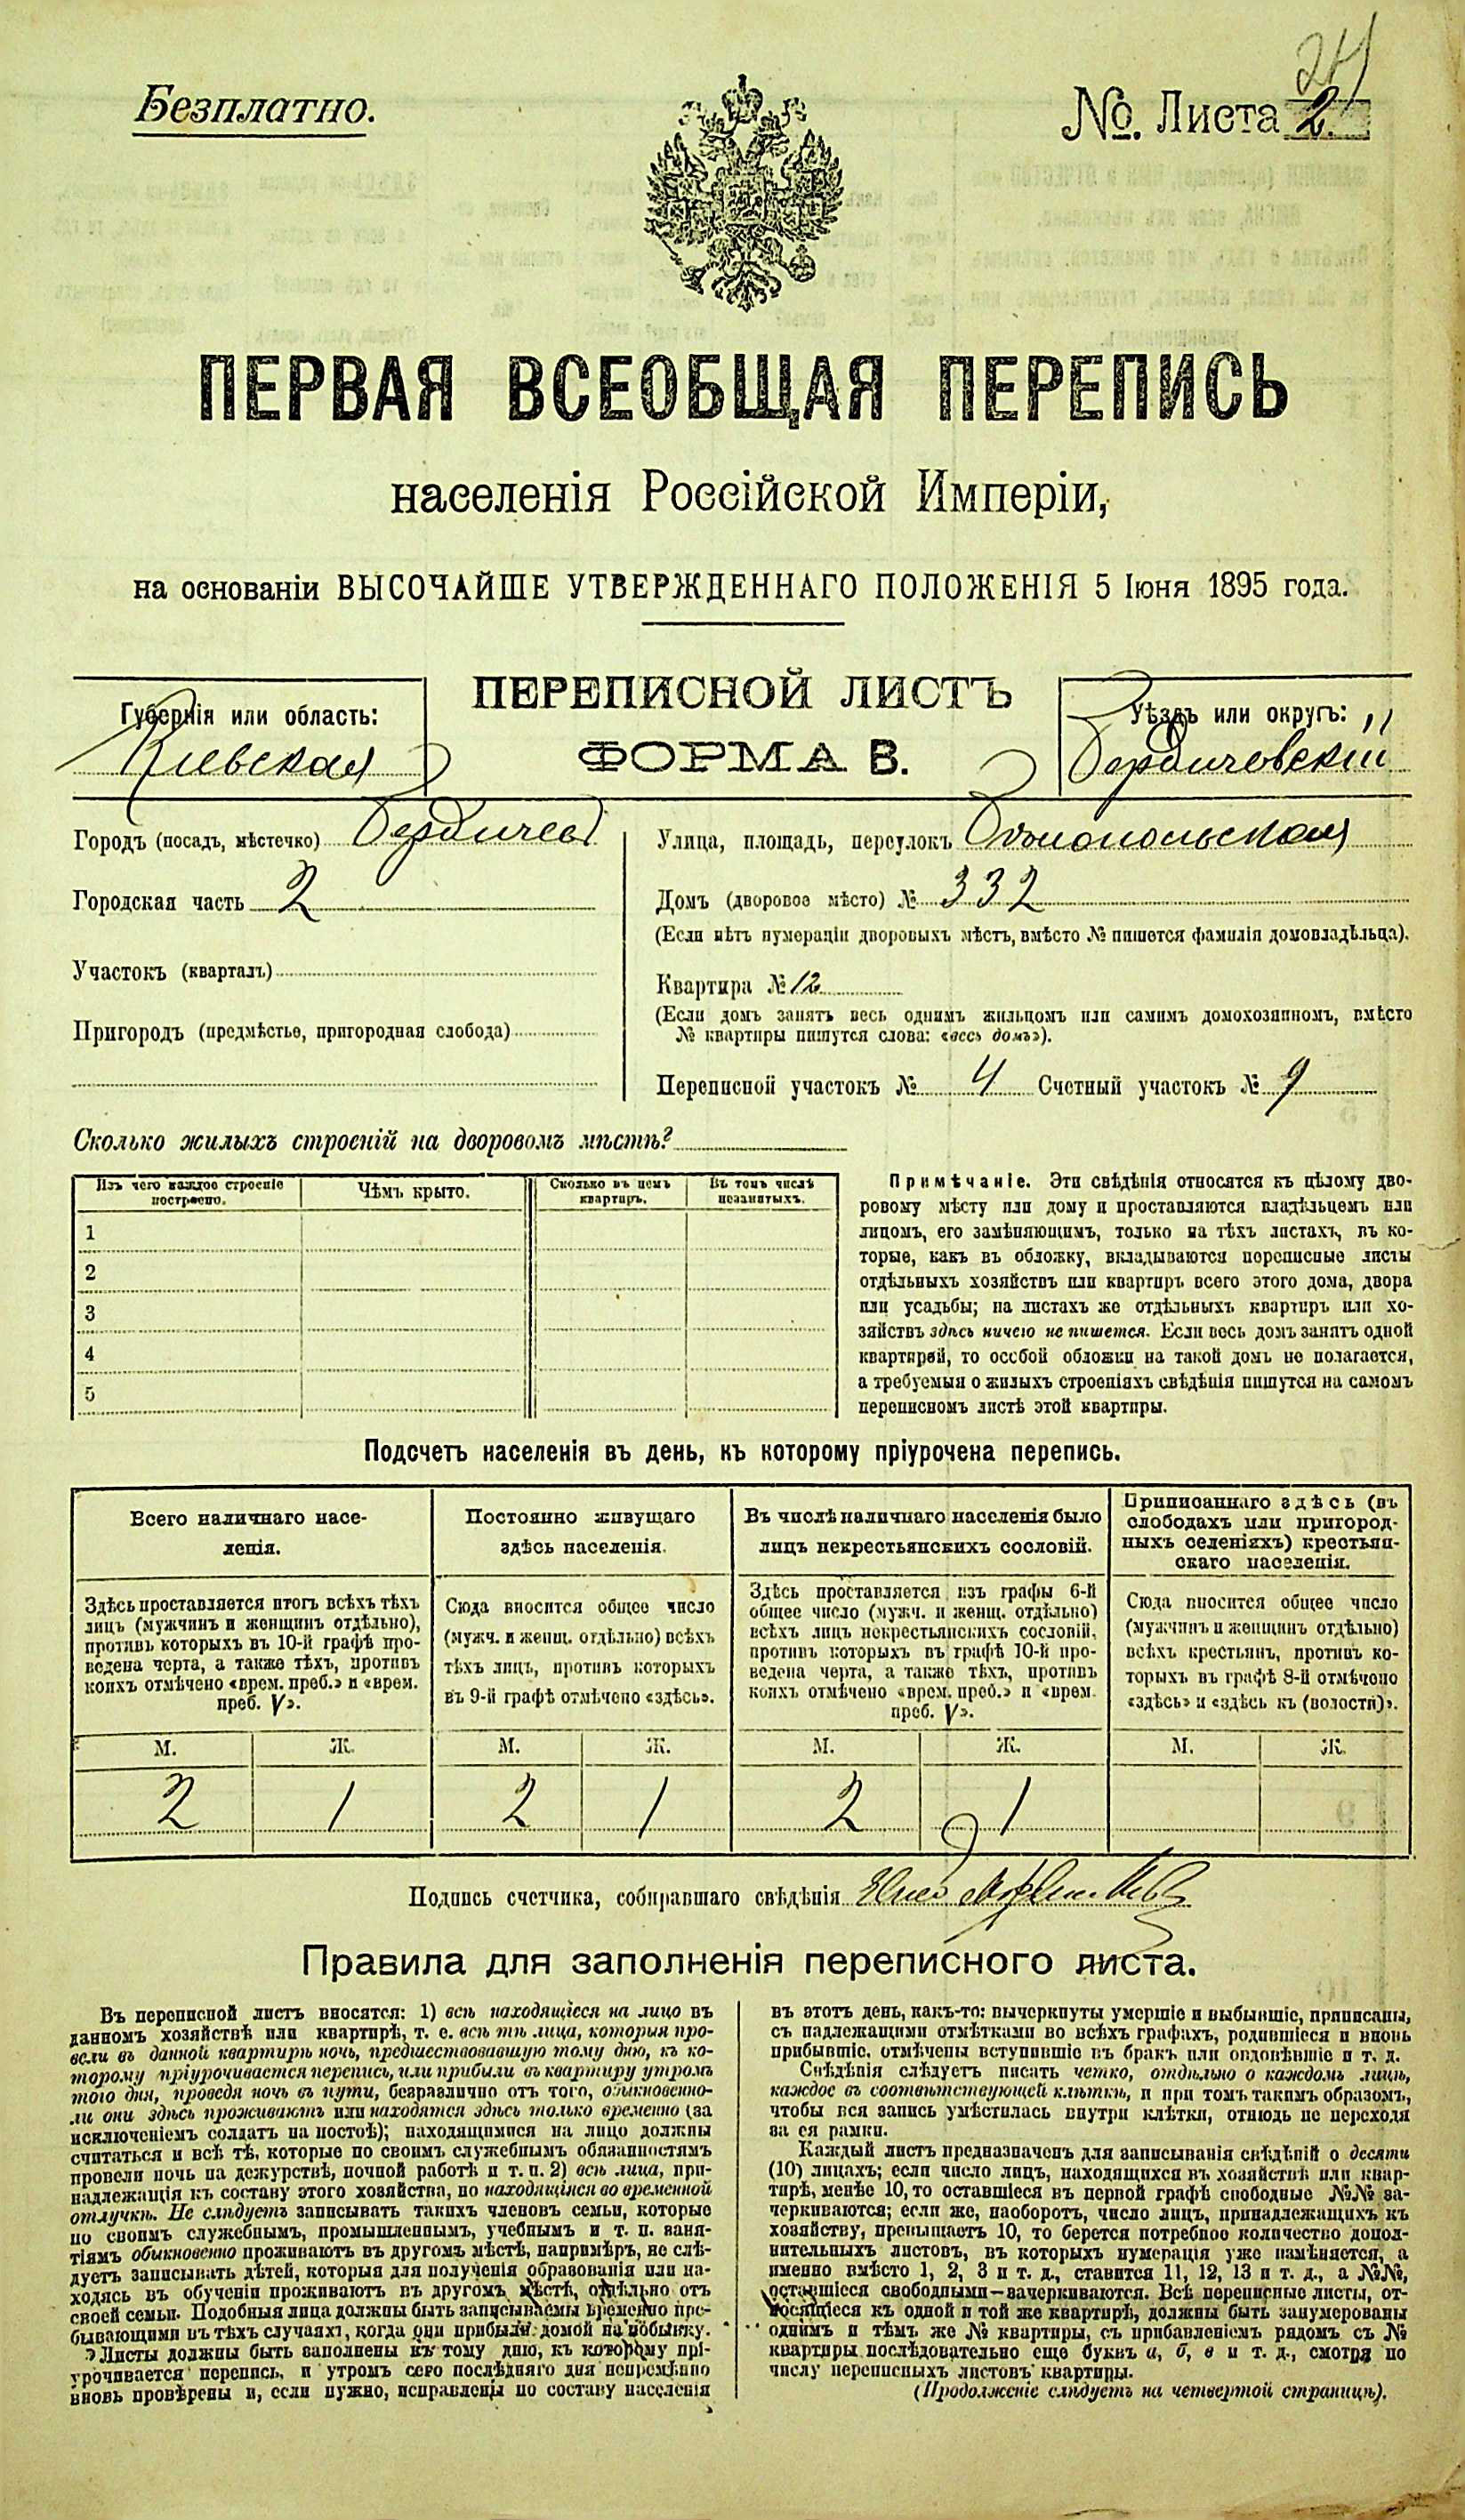 Безплатно.
24
№. Листа 2.
ПЕРВАЯ ВСЕОБЩАЯ ПЕРЕПИСЬ
населенія Россійской Имперіи,
на основаніи ВЫСОЧАЙШЕ УТВЕРЖДЕННАГО ПОЛОЖЕНІЯ 5 Іюня 1895 года.
ПЕРЕПИСНОЙ ЛИСТЪ
ФОРМА В.
Губернія или область:
Кіевская
Уѣздъ или округъ:
Бердичевскій
Городъ (посадъ, мѣстечко) Бердичевъ
Городская часть 2
Участокъ (кварталъ)
Пригородъ (предмѣстье, пригородная слобода)
Улица, площадь, переулокъ
Домъ (дворовое мѣсто) № 332
(Если нѣтъ нумераціи дворовыхъ мѣстъ, вмѣсто № пишется фамилія домовладѣльца).
Квартира № 12
(Если домъ занятъ весь однимъ жильцомъ или самимъ домохозяиномъ, вмѣсто
№ квартиры пишутся слова: «весь домъ»).
Переписной участокъ № 4 Счетный участокъ № 9
Сколько жилыхъ строеній на дворовомъ мѣстѣ?
Изъ чего каждое строеніе построено.
Чѣмъ крыто.
Сколько въ немъ квартиръ.
Въ томъ числѣ незанятыхъ.
1
2
3
4
5
Примѣчаніе. Эти свѣдѣнія относятся къ цѣлому дво-
ровому мѣсту или дому и проставляются владѣльцемъ или
лицомъ, его замѣняющимъ, только на тѣхъ листахъ, въ ко-
торые, какъ въ обложку, вкладываются переписные листы
отдѣльныхъ хозяйствъ или квартиръ всего этого дома, двора
или усадьбы; на листахъ же отдѣльныхъ квартиръ или хо-
зяйствъ здѣсь ничего не пишется. Если весь домъ занятъ одной
квартирой, то особой обложки на такой домъ не полагается,
а требуемыя о жилыхъ строеніяхъ свѣдѣнія пишутся на самомъ
переписномъ листѣ этой квартиры.
Подсчетъ населенія въ день, къ которому пріурочена перепись.
Всего наличнаго насе-
ленія.
Здѣсь проставляется итогъ всѣхъ тѣхъ
лицъ (мужчинъ и женщинъ отдѣльно),
противъ которыхъ въ 10-й графѣ про-
ведена черта, а также тѣхъ, противъ
коихъ отмѣчено «врем. преб.» и «врем.
преб. V».
Постоянно живущаго
здѣсь населенія.
Сюда вносится общее число
(мужч. и женщ. отдѣльно) всѣхъ
тѣхъ лицъ, противъ которыхъ
въ 9-й графѣ отмѣчено «здѣсь».
Въ числѣ наличнаго населенія было
лицъ некрестьянскихъ сословій.
Здѣсь проставляется изъ графы 6-й
общее число (мужч. и женщ. отдѣльно)
всѣхъ лицъ некрестьянскихъ сословій,
противъ которыхъ въ графѣ 10-й про-
ведена черта, а также тѣхъ, противъ
коихъ отмѣчено «врем. преб.» и «врем.
преб. V».
Приписаннаго здѣсь (въ
слободахъ или пригород-
ныхъ селеніяхъ) крестьян-
скаго населенія.
Сюда вносится общее число
(мужчинъ и женщинъ отдѣльно)
всѣхъ крестьянъ, противъ ко-
торыхъ въ графѣ 8-й отмѣчено
«здѣсь» и «здѣсь къ (волости)».
М. Ж. М. Ж. М. Ж. М. Ж.
2 1 2 1 2 1
Подпись счетчика, собиравшаго свѣдѣнія
Правила для заполненія переписного листа.
Въ переписной листъ вносятся: 1) всѣ находящіеся на лицо въ
данномъ хозяйствѣ или квартирѣ, т. е. всѣ тѣ лица, которыя про-
вели въ данной квартирѣ ночь, предшествовавшую тому дню, къ ко-
торому пріурочивается перепись, или прибыли въ квартиру утромъ
того дня, проведя ночь въ пути, безразлично отъ того, обыкновенно-
ли они здѣсь проживаютъ или находятся здѣсь только временно (за
исключеніемъ солдатъ на постоѣ); находящимися на лицо должны
считаться и всѣ тѣ, которые по своимъ служебнымъ обязанностямъ
провели ночь на дежурствѣ, ночной работѣ и т. п. 2) всѣ лица, при-
надлежащія къ составу этого хозяйства, но находящіяся во временной
отлучкѣ. Не слѣдуетъ записывать такихъ членовъ семьи, которые
по своимъ служебнымъ, промышленнымъ, учебнымъ и т. п. заня-
тіямъ обыкновенно проживаютъ въ другомъ мѣстѣ, напримѣръ, не слѣ-
дуетъ записывать дѣтей, которыя для полученія образованія или на-
ходясь въ обученіи проживаютъ въ другомъ мѣстѣ, отдѣльно отъ
своей семьи. Подобныя лица должны быть записываемы временно пре-
бывающими въ тѣхъ случаяхъ, когда они прибыли домой на побывку.
Листы должны быть заполнены къ тому дню, къ которому прі-
урочивается перепись, и утромъ сего послѣдняго дня непремѣнно
вновь провѣрены и, если нужно, исправлены по составу населенія
въ этотъ день, какъ-то: вычеркнуты умершіе и выбывшіе, приписаны,
съ надлежащими отмѣтками во всѣхъ графахъ, родившіеся и вновь
прибывшіе, отмѣчены вступившіе въ бракъ или овдовѣвшіе и т. д.
Свѣдѣнія слѣдуетъ писать четко, отдѣльно о каждомъ лицѣ,
каждое въ соотвѣтствующей клѣткѣ, и при томъ такимъ образомъ,
чтобы вся запись умѣстилась внутри клѣтки, отнюдь не переходя
за ея рамки.
Каждый листъ предназначенъ для записыванія свѣдѣній о десяти
(10) лицахъ; если число лицъ, находящихся въ хозяйствѣ или квар-
тирѣ, менѣе 10, то оставшіеся въ первой графѣ свободные №№ за-
черкиваются; если же, наоборотъ, число лицъ, принадлежащихъ къ
хозяйству, превышаетъ 10, то берется потребное количество допол-
нительныхъ листовъ, въ которыхъ нумерація уже измѣняется, а
именно вмѣсто 1, 2, 3 и т. д., ставится 11, 12, 13 и т. д., а №№,
оставшіеся свободными—зачеркиваются. Всѣ переписные листы, от-
носящіеся къ одной и той же квартирѣ, должны быть занумерованы
однимъ и тѣмъ же № квартиры, съ прибавленіемъ рядомъ съ №
квартиры послѣдовательно еще буквъ а, б, в и т. д., смотря по
числу переписныхъ листовъ квартиры.
(Продолженіе слѣдуетъ на четвертой страницѣ).